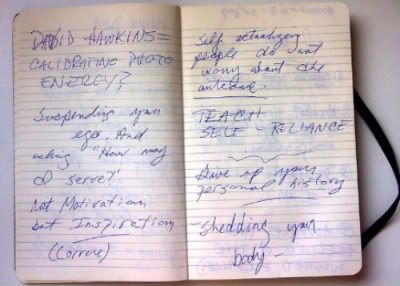 DAVID HAWKINS =
CALIBRATING PHOTO
ENERGY?
Suspending your
ego. And
asking "How may
I serve?"
Not Motivation
but Inspiration
(Corrine)
Self actualizing
people do not
worry about the
outcome.
TEACH
SELF-RELIANCE
Give up your
personal history
-Shedding your
body-